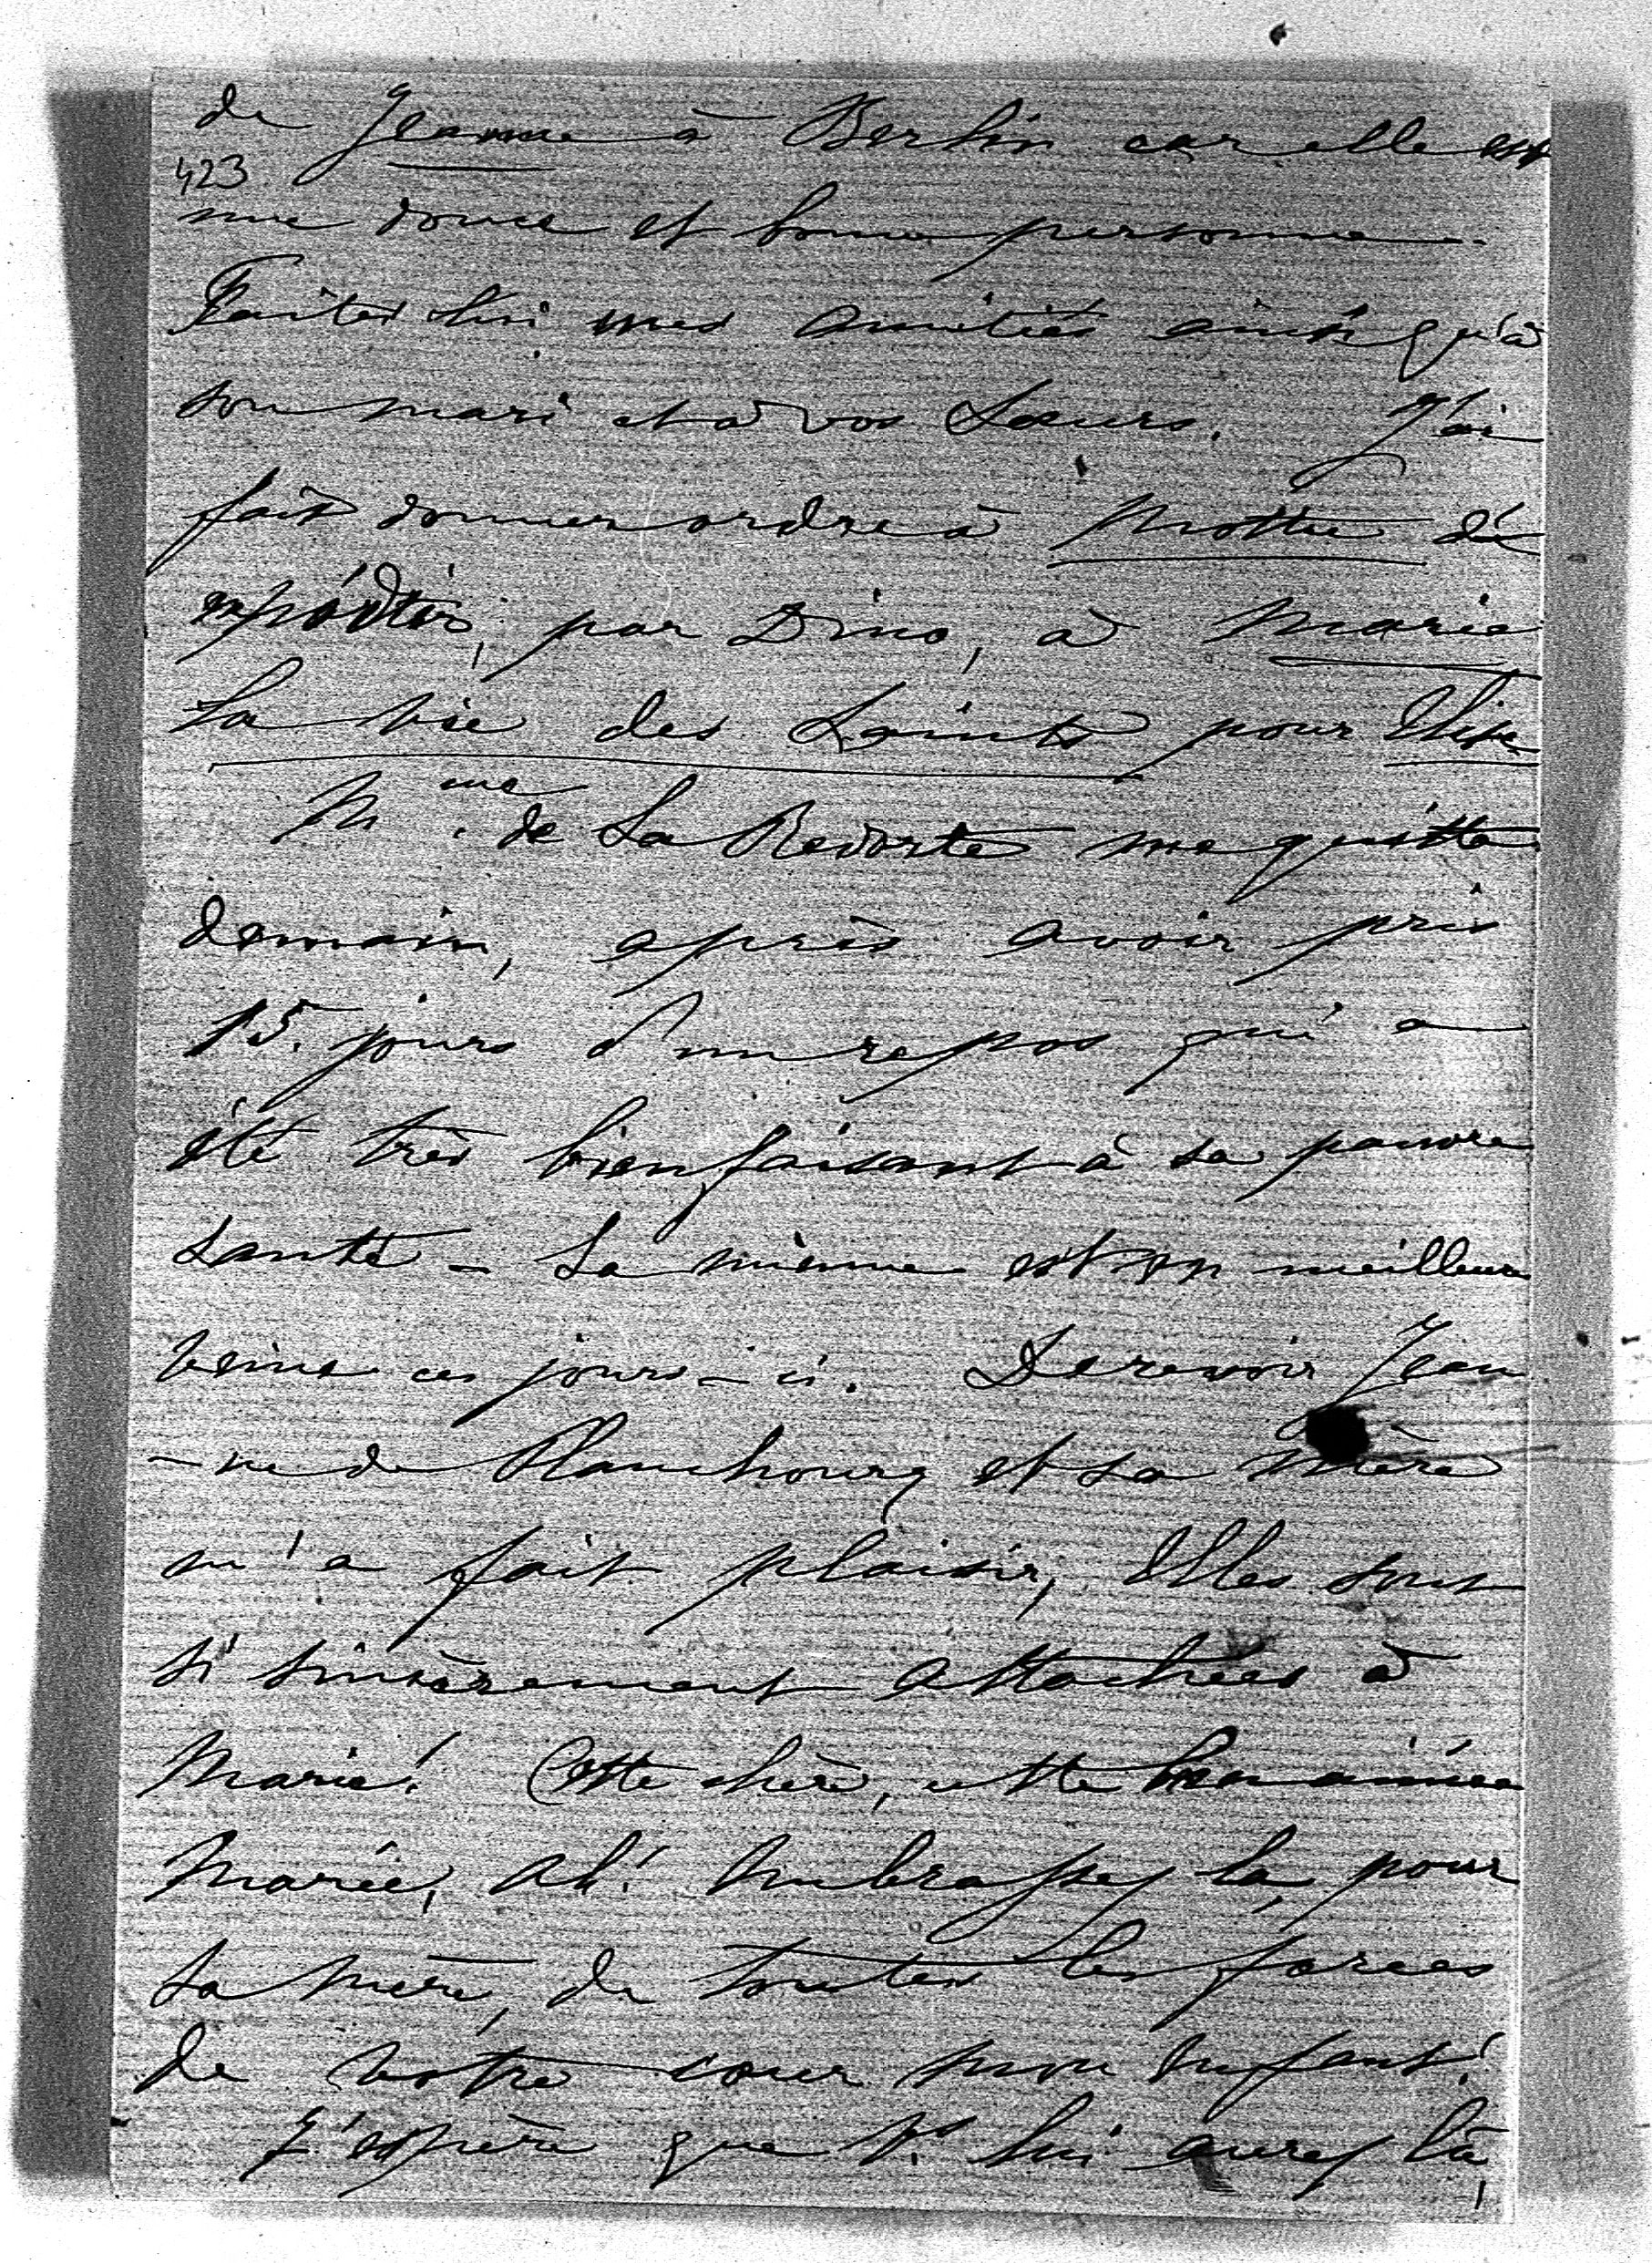 de Jeanne à Berlin car elle est
423
une douce et bonne personne.
Faites lui mes amitiés ainsi qu'à
son mari et à vos Sœurs. J'ai
fait donner ordre à Mottu d'é
expédier, par Dino, à Marie
La Vie des Saints pour Elise
Mme de La Redorte me quitte
demain, après avoir pris
15. jours d'un repos qui a
été très bienfaisant à sa pauvre
santé – La mienne est en meilleure
veine ces jours-ci. De revoir Jean
-ne de Planchoury et sa mère
m'a fait plaisir, Elles sont
si sincèrement attachées à
Marie! Cette chère, cette bien aimée
Marie, ah! Embrassez la, pour
sa mère, de toutes les forces
de votre cœur mon Enfant!
J'espère que V. lui aurez là,